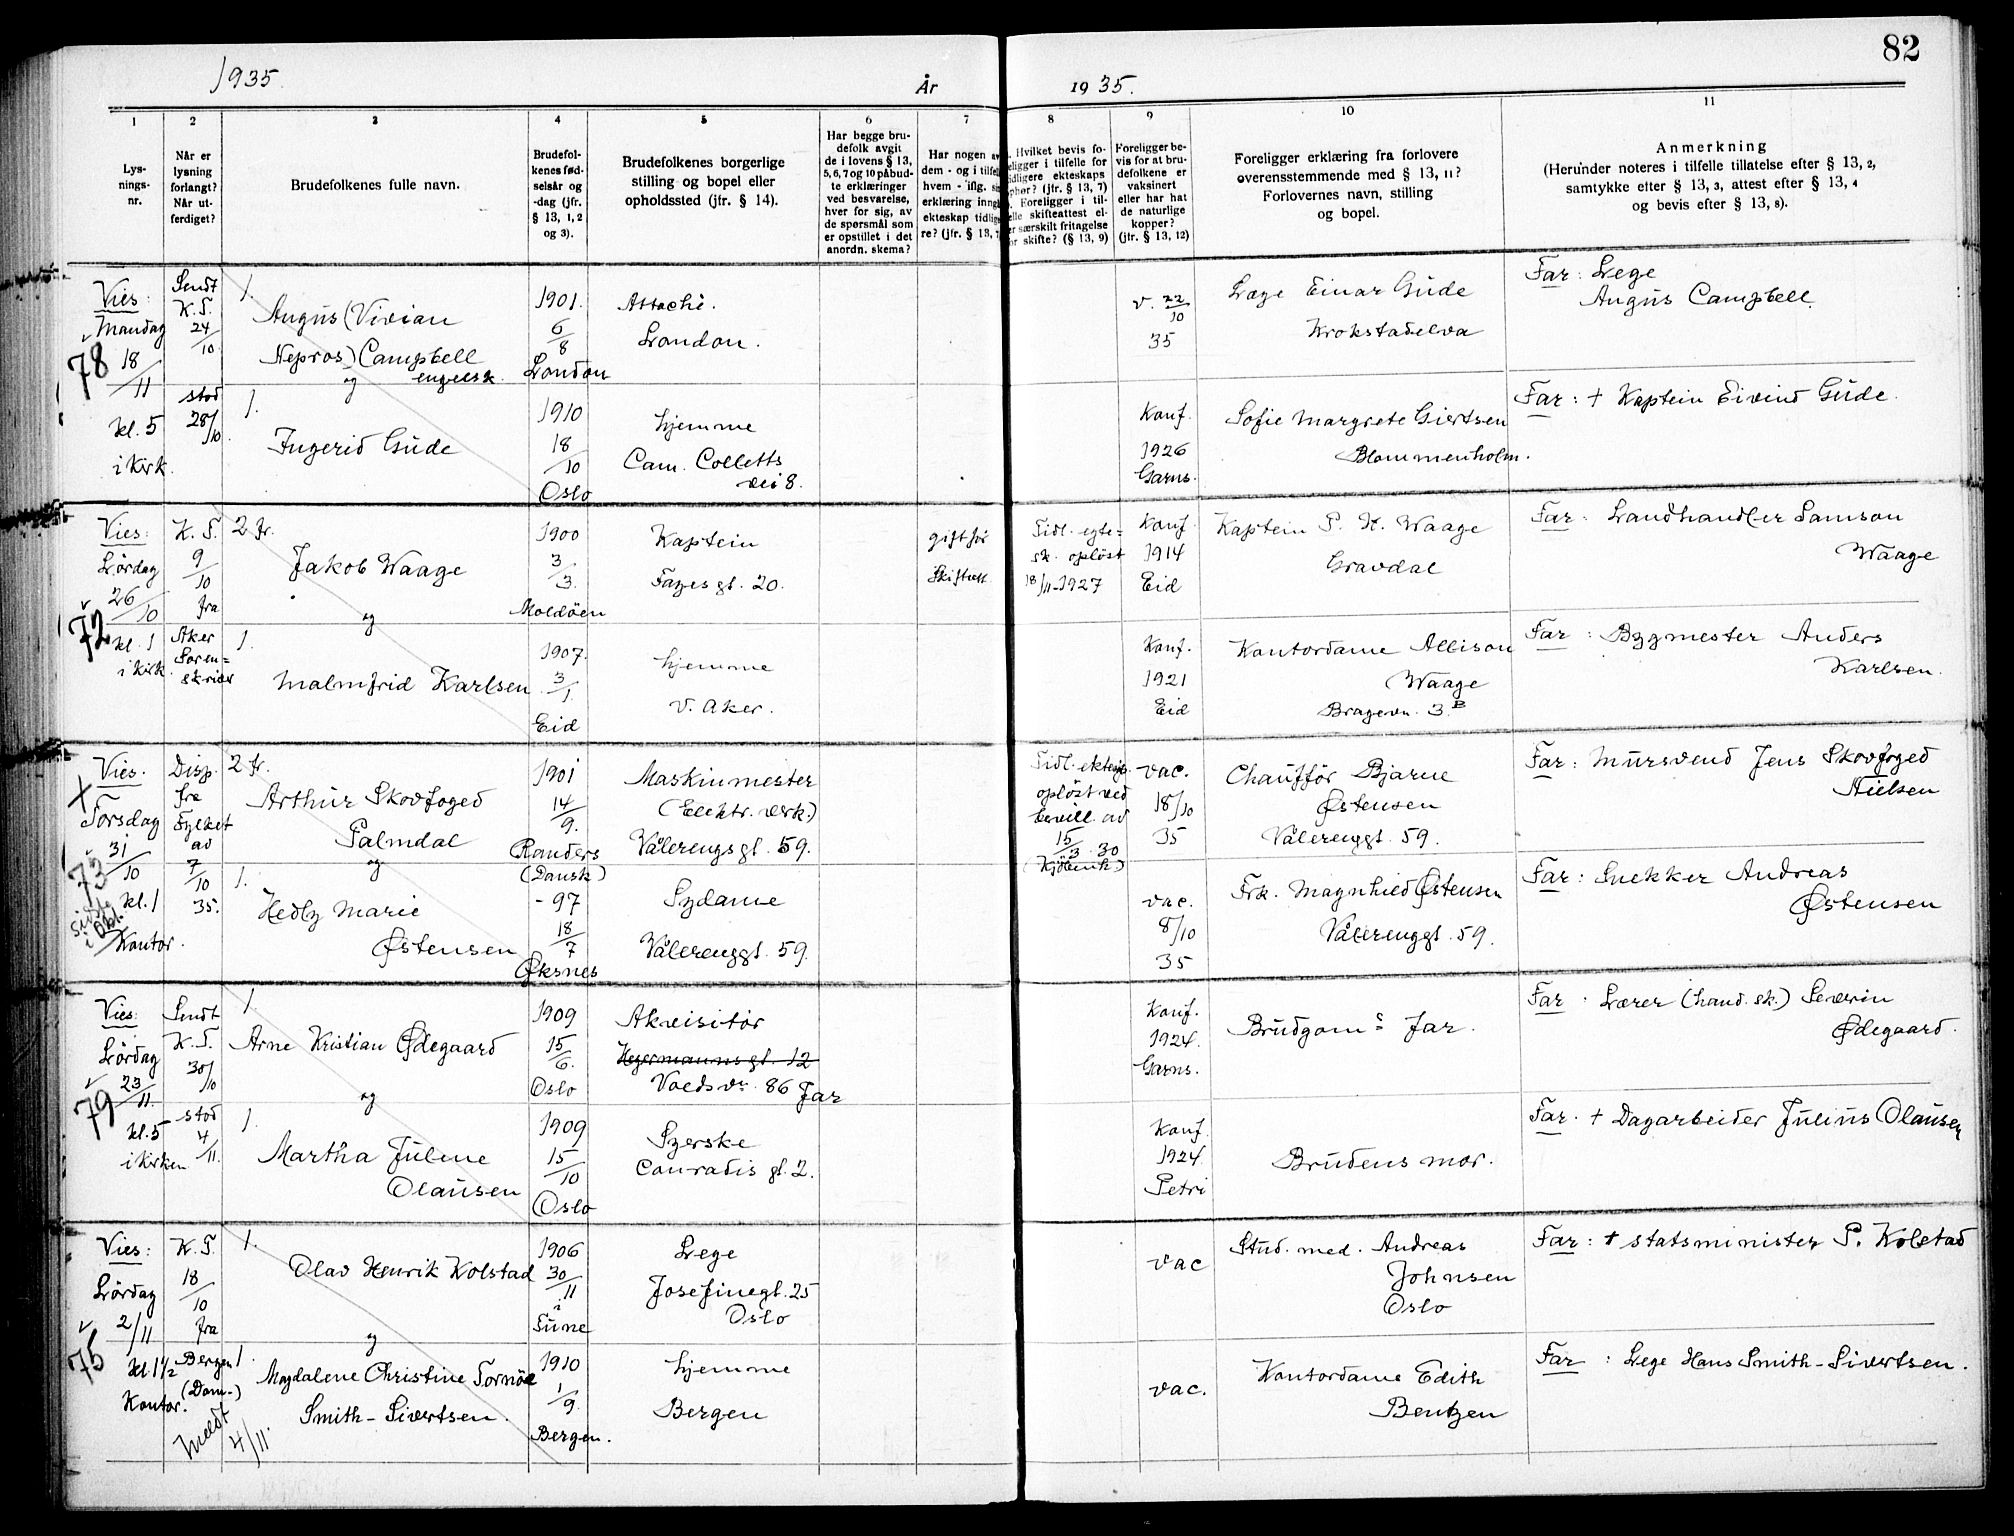 82
1935.
År
1935.
1
2
3
4
5
6
7
8
9
10
11
Lys-
nings-
nr.
Når er
lysning
forlangt?
Når ut-
ferdiget?
Brudefolkenes fulle navn.
Brudefol-
kenes fød-
selsår og
-dag (jfr.
§ 13, 1, 2
og 3).
Brudefolkenes borgerlige
stilling og bopel eller
opholdssted (jfr. § 14).
Har begge bru-
defolk avgit
de i lovens § 13,
5, 6, 7 og 10 påbud-
te erklæringer
ved besvarelse,
hver for sig, av
de spørsmål som
er opstillet i det
anordn. skema?
Har nogen av
dem - og i tilfelle
hvem - iflg. si
erklæring inng
ekteskap tidlig
re? (jfr. § 13, 7
Hvilket bevis fo-
eligger i tilfelle for
idligere ekteskaps
ophør? (jfr. § 13, 7)
Foreligger i til-
elle skifteattest el-
er særskilt fritagelse
or skifte? (§ 13, 9)
Foreligger be-
vis for at bru-
defolkene er
vaksinert
eller har hat
de naturlige
kopper?
(jfr. § 13, 12)
Foreligger erklæring fra forlovere
overensstemmende med § 13, 11?
Forlovernes navn, stilling
og bopel.
Anmerkning
(Herunder noteres i tilfelle tillatelse efter § 13, 2,
samtykke efter § 13, 3, attest efter § 13, 4
og bevis efter § 13, 8).
78
Vies:
Mandag
18/11
kl. 5
i kirk.
Sendt
K. T.
24/10
stod
28/10.
1.
Angus (Vivian
Nepros) Campbell
engelsk
og
1.
Ingerid Gude
1901.
6/8
London
1910
18/10
Oslo
Attaché.
London.
hjemme
Cam. Colletts
vei 8.
v. 22/10
35
Konf.
1926
Garns.
Læge Einar Gude
Krokstadelva
Sofie Margrete Giertsen
Blommenholm.
Far: Lege
Angus Campbell
Far: + Kaptein Eivind Gude.
72
Vies:
Lørdag
26/10
kl. 1
i kirk.
K. T.
9/10
fra
Aker
Soren=
skriver
2 fr.
Jakob Waage
og
1.
Malmfrid Karlsen
1900
3/3.
Moldöen
1907.
3/1.
Eid
Kaptein
Fayes gt. 20.
hjemme
V. Aker.
gift før
Skifteatt
Tidl. egte=
sk. opløst
18/11-1927
Konf.
1914
Eid
Konf.
1921
Eid
Kaptein P. N. Waage
Gravdal
Kontordame Allison
Waage
Bragevn. 3B
Far: Landhandler Samson
Waage
Far: Bygmester Anders
Karlsen.
73
Vies.
Torsdag
31/10
kl. 1
Kontor.
Disp.
fra
Fylket
av
7/10
35.
2 fr.
Arthur Skovfoged
Palmdal
og
1.
Hedly Marie
Østensen
1901
14/9.
Randers
(Dansk)
- 97
18/7
Øksnes
Maskinmester
(Elektr. verk.)
Vålerengsgt. 59.
Sydame
Vålerenggt. 59.
Tidl. ektesk.
opløst ved
bevill. av
15/3 30
(Kjöbenh)
vac.
18/10
35
vac.
8/10
35
Chaufför Bjarne
Østensen
Vålerenggt. 59.
Frk. Magnhild Østensen
Vålerenggt. 59.
Far: Mursvend Jens Skovfoged
Nielsen
Far: Snekker Andreas
Østensen
79
Vies:
Lördag
23/11.
kl. 5
i kirken
Sendt
K. T.
30/10
stod
4/11.
1.
Arne Kristian Ødegaard
og
1.
Martha Juline
Olausen
1909
15/6.
Oslo
1909
15/10
Oslo
Akvisitör
Hegermannsgt. 12
Voldsvn. 86 Jar
Syerske
Conradis gt. 2.
Konf.
1924.
Garns.
Konf.
1924.
Petri
Brudgoms far.
Brudens mor.
Far: Lærer (hand. sk.) Severin
Ødegaard.
Far. + Dagarbeider Julius Olausen
75
Vies:
Lördag
2/11
kl. 1½
Kontor.
K. T.
18/10
fra
Bergen
(Dom-)
Meldt
4/11.
1.
Olav Henrik Kolstad
og
1.
Magdalene Christine Tornöe
Smith-Sivertsen.
1906
30/11
i
Tune
1910
1/9.
Bergen.
Lege
Josefinegt. 25
Oslo
hjemme
Bergen
vac
vac.
Stud. med. Andreas
Johnsen
Oslo
Kontordame Edith
Bentzen
Far: + statsminister P. Kolstad
Far: Lege Hans Smith-Sivertsen.